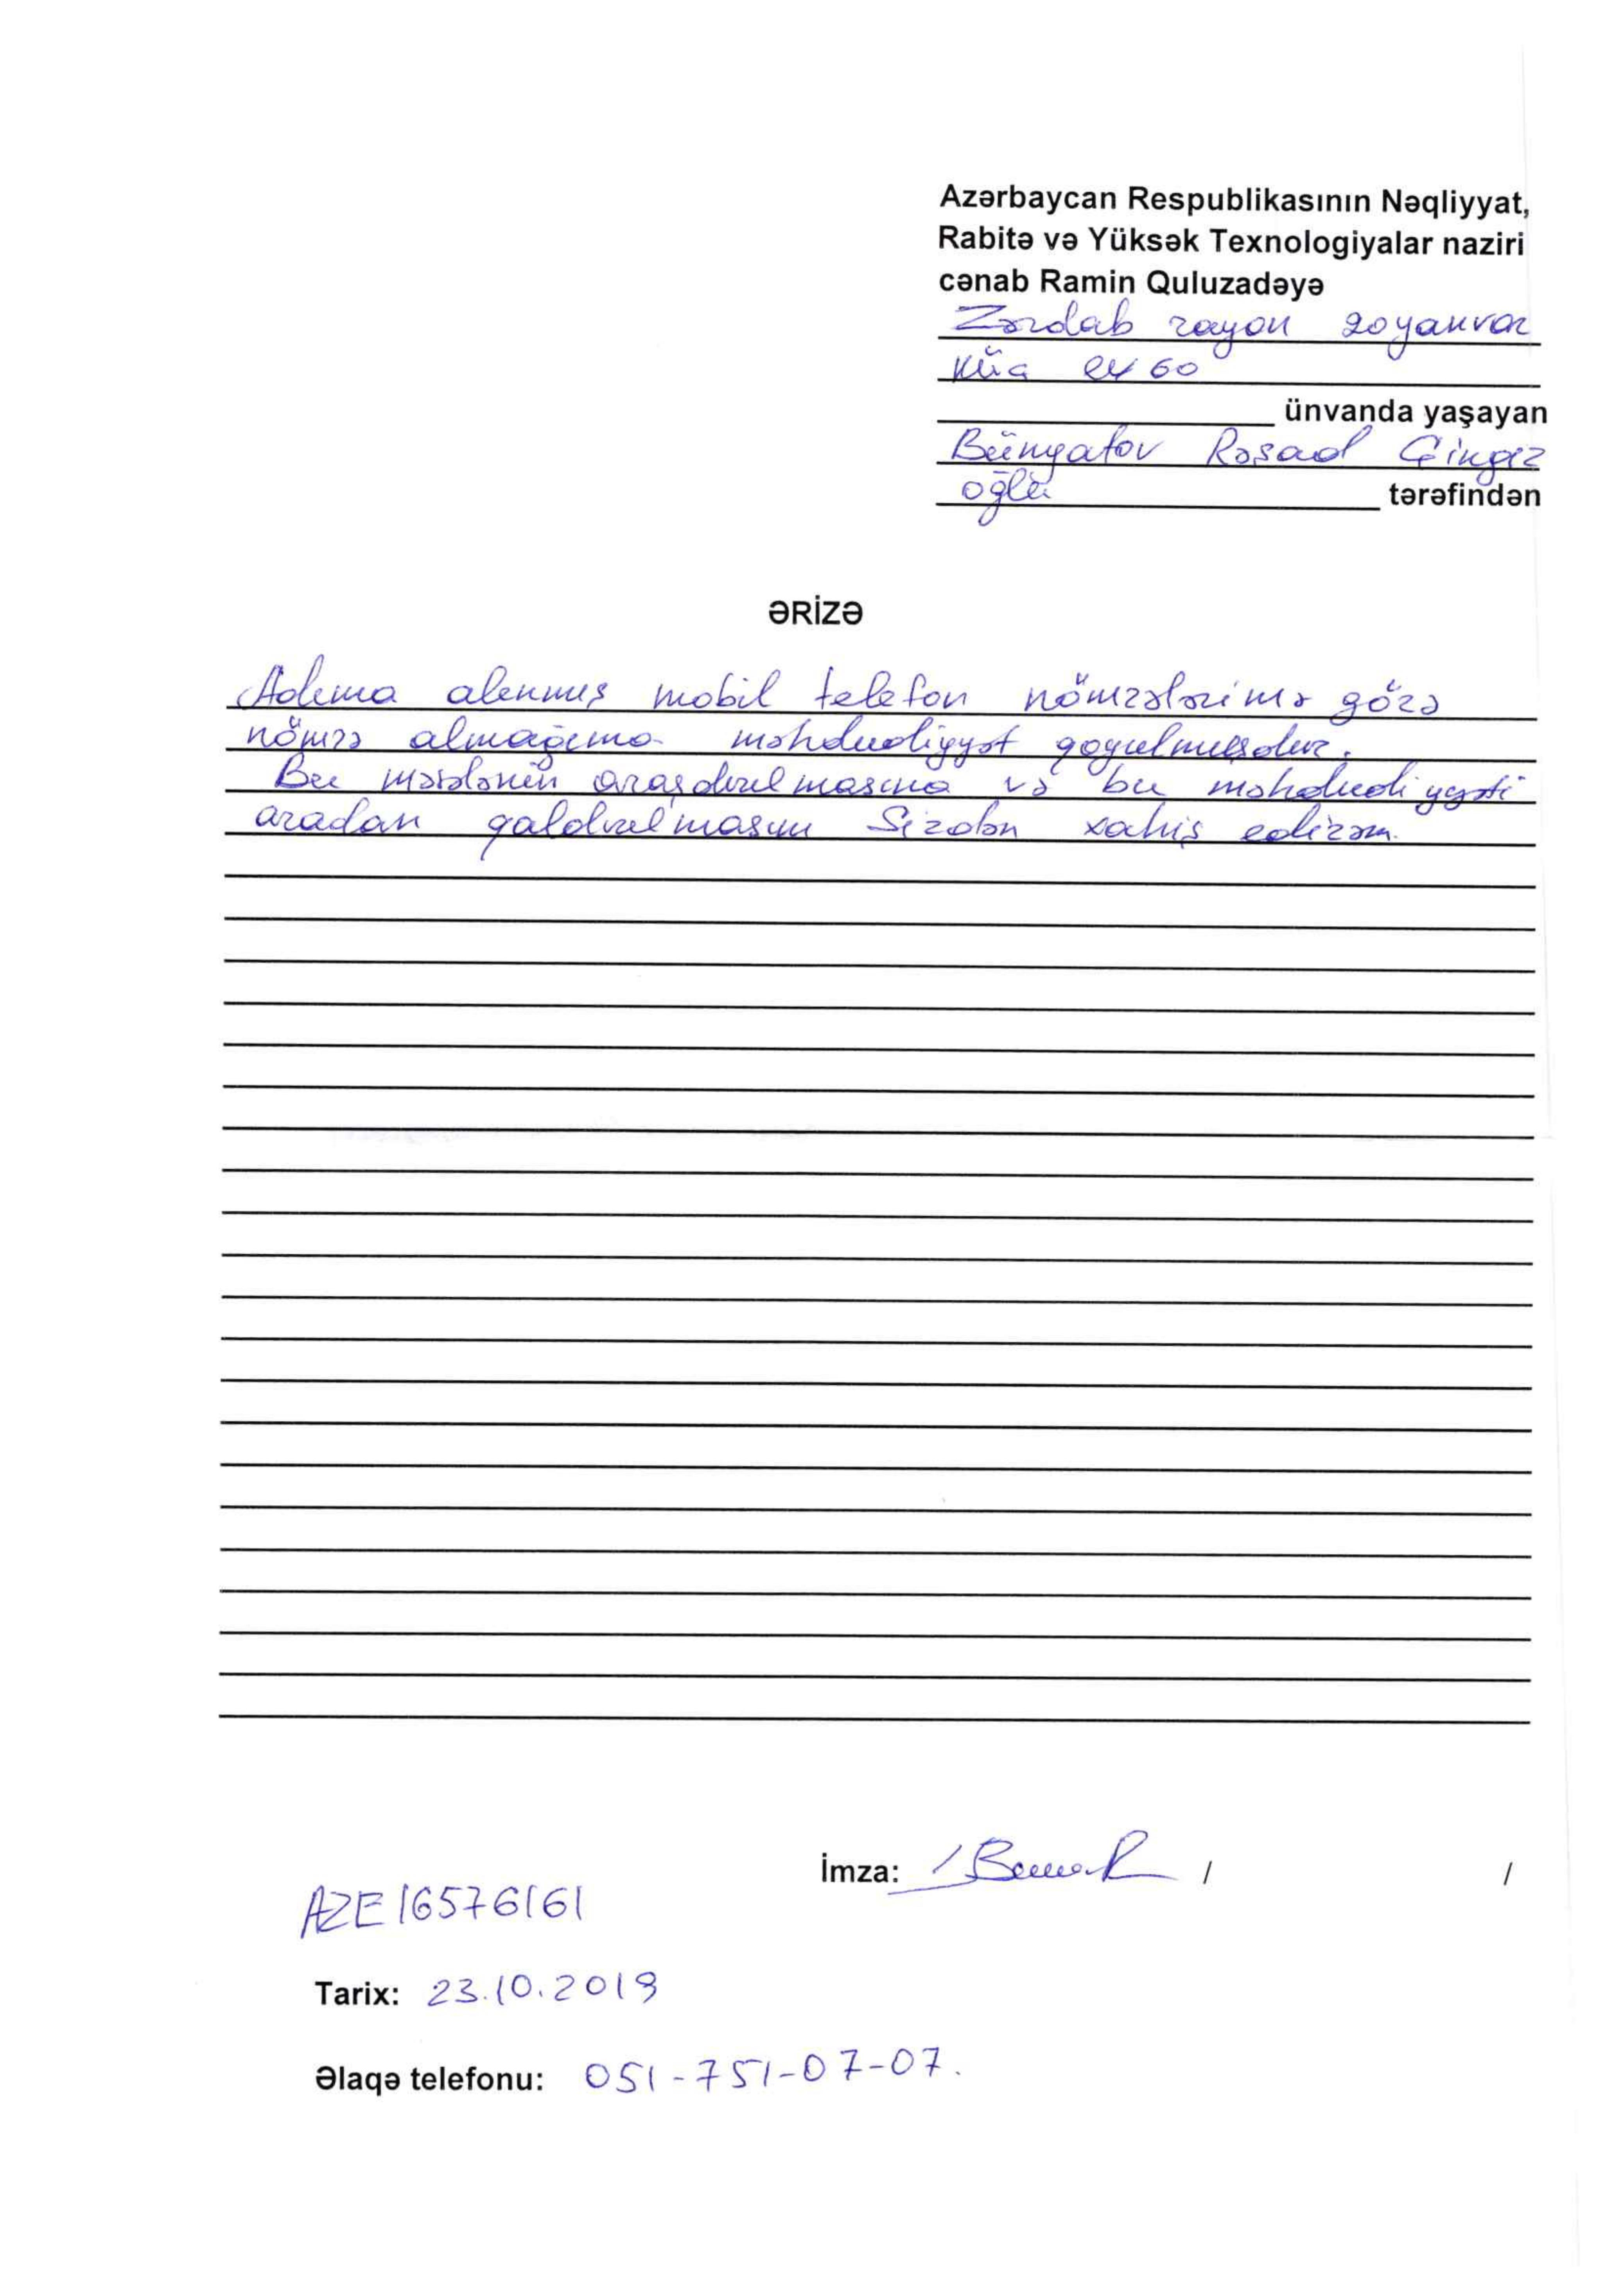 Azərbaycan Respublikasının Nəqliyyat,
Rabitə və Yüksək Texnologiyalar naziri
cənab Ramin Quluzadəyə
Zərdab rayon 20 yanvar
küç ev 60
ünvanda yaşayan
Bünyatov Rəşad Çingiz
oğlu
tərəfindən
ƏRİZƏ
Adıma alınmış mobil telefon nömrələrimə görə
nömrə almağıma məhdudiyyət qoyulmuşdur.
Bu məsələnin araşdırılmasına və bu məhdudiyyəti
aradan qaldırılmasını Sizdən xahiş edirəm.
İmza: / /
AZE16576161
Tarix: 23.10.2019
Əlaqə telefonu: 051-751-07-07.